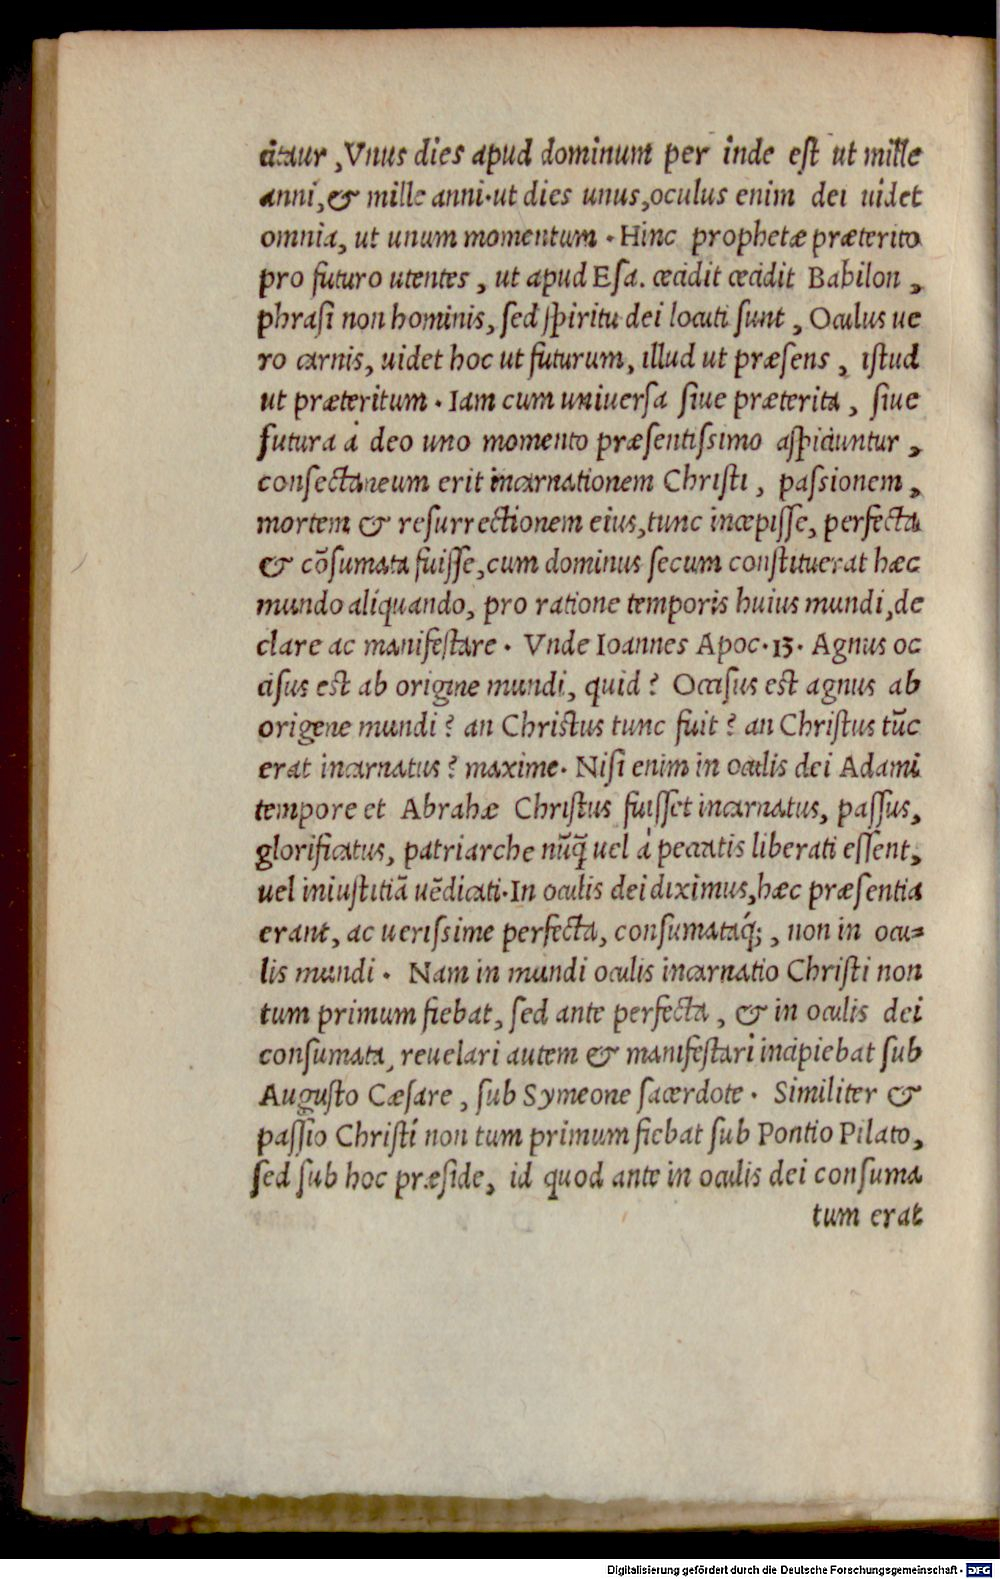 citaur, Vnus dies apud dominum per inde est ut mille
anni, & mille anni·ut dies unus, oculus enim dei uidet
omnia, ut unum momentum · Hinc prophetæ præterito
pro futuro utentes, ut apud Esa. cecidit cecidit Babilon,
phrasi non hominis, sed spiritu dei locuti sunt, Oculus ue
ro carnis, uidet hoc ut futurum, illud ut præsens, istud
ut præteritum · Iam cum uniuersa siue præterita, siue
futura à deo uno momento præsentissimo aspiciuntur,
consectaneum erit incarnationem Christi, passionem,
mortem & resurrectionem eius, tunc incepisse, perfecta
& cõsumata fuisse, cum dominus secum constituerat hæc
mundo aliquando, pro ratione temporis huius mundi, de
clare ac manifestare · Vnde Ioannes Apoc·13· Agnus oc
cisus est ab origine mundi, quid? Occisus est agnus ab
origene mundi? an Christus tunc fuit? an Christus tũc
erat incarnatus? maxime· Nisi enim in oculis dei Adami
tempore et Abrahæ Christus fuisset incarnatus, passus,
glorificatus, patriarche nũq̃ uel à peccatis liberati essent,
uel iniustitiã uẽdicati·In oculis dei diximus, hæc præsentia
erant, ac uerissime perfecta, consumataq́;, non in ocu=
lis mundi · Nam in mundi oculis incarnatio Christi non
tum primum fiebat, sed ante perfecta, & in oculis dei
consumata, reuelari autem & manifestari incipiebat sub
Augusto Cæsare, sub Symeone sacerdote · Similiter &
passio Christi non tum primum fiebat sub Pontio Pilato,
sed sub hoc præside, id quod ante in oculis dei consuma
tum erat
Digitalisierung gefördert durch die Deutsche Forschungsgemeinschaft - DFG